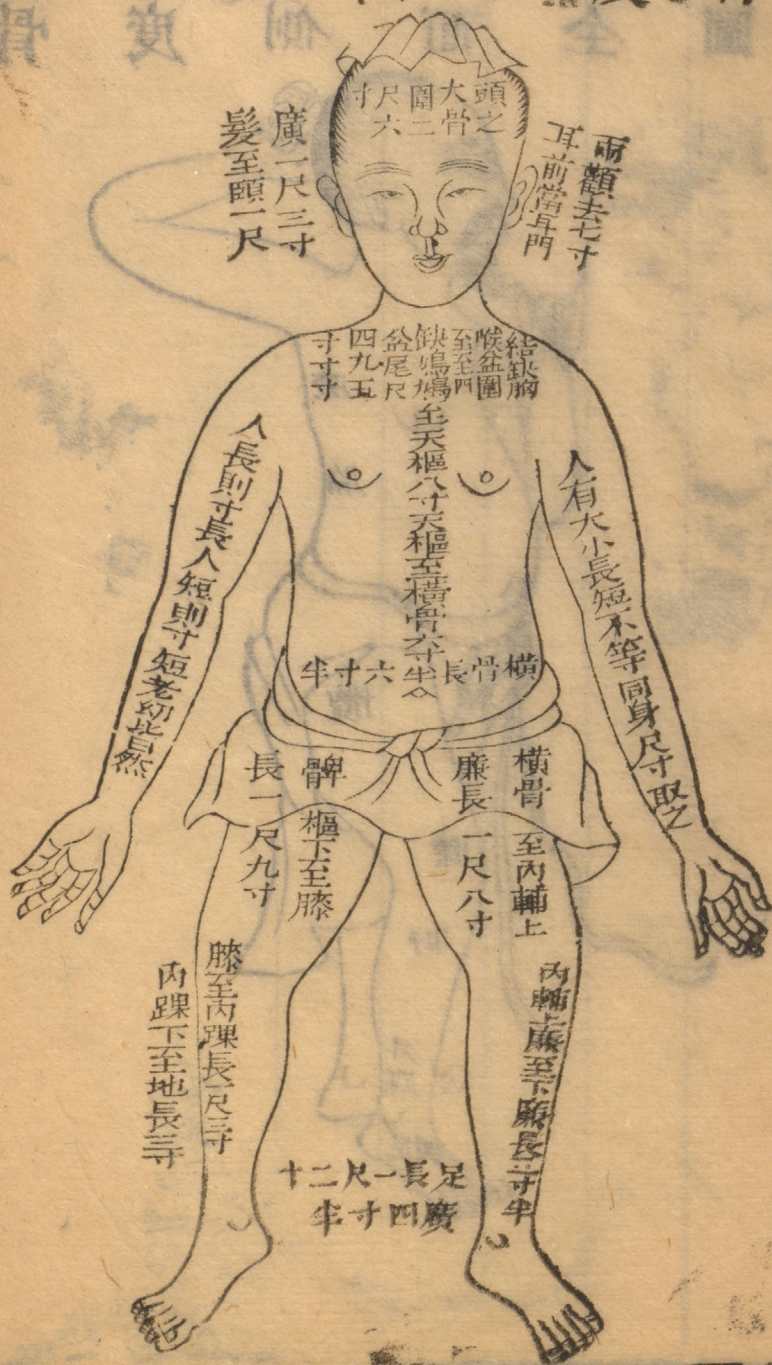 頭之大骨圍二尺六寸
兩顴去七寸
耳前當耳門
廣一尺三寸
髮至頤一尺
結喉至缺盆四寸
缺盆至鳩尾九寸
胸圍四尺五寸
至天樞八寸天樞至橫骨六寸半
橫骨長六寸半
人有大小長短不等同身尺寸取之
人長則寸長人短則寸短老幼皆然
橫骨至內輔上
廉長一尺八寸
髀樞下至膝
長一尺九寸
內輔上廉至下廉長三寸半
膝至內踝長一尺三寸
內踝下至地長三寸
足長一尺二十
廣四寸半